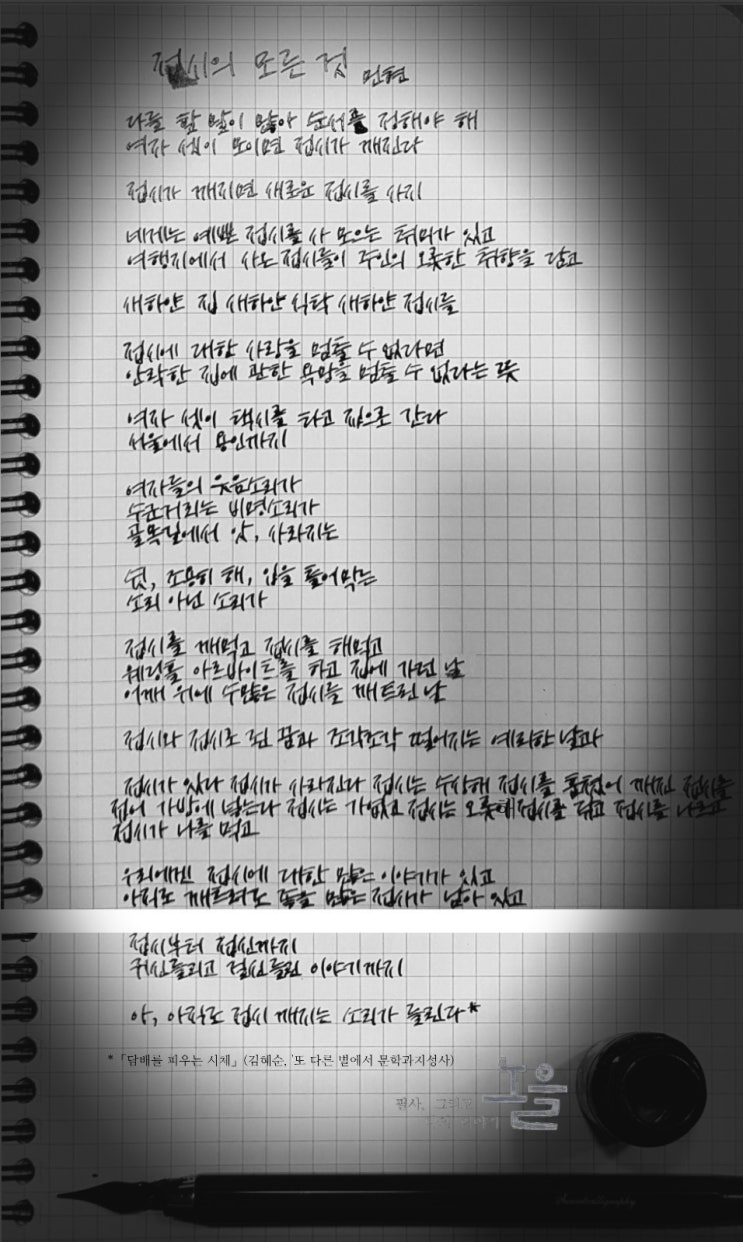 접시의 모든 것 민현
다들 할 말이 많아 순서를 정해야 해
여자 셋이 모이면 접시가 깨진다
접시가 깨지면 새로운 접시를 사지
네게는 예쁜 접시를 사 모으는 취미가 있고
여행지에서 사온 접시들이 주인의 오롯한 취향을 담고
새하얀 집 새하얀 식탁 새하얀 접시들
접시에 대한 사랑을 멈출 수 없다면
안락한 집에 관한 욕망을 멈출 수 없다는 뜻
여자 셋이 택시를 타고 집으로 간다
서울에서 용인까지
여자들의 웃음소리가
수군거리는 비명소리가
골목길에서 앗, 사라지는
쉿, 조용히 해, 입을 틀어막는
소리 아닌 소리가
접시를 깨먹고 접시를 해먹고
웨딩홀 아르바이트를 하고 집에 가던 날
어깨 위에 수많은 접시를 깨트린 날
접시와 접시로 된 꿈과 조각조각 떨어지는 예리한 날과
접시가 있다 접시가 사라진다 접시는 수상해 접시를 훔쳤어 깨진 접시를
접어 가방에 넣는다 접시는 가엾고 접시는 오롯해 접시를 닦고 접시를 나르고
접시가 나를 먹고
우리에겐 접시에 대한 많은 이야기가 있고
아직도 깨트려도 좋을 많은 접시가 남아 있고
접시부터 접신까지
귀신들리고 걸신들린 이야기까지
아, 아직도 접시 깨지는 소리가 들린다*
*「담배를 피우는 시체」(김혜순, '또 다른 별에서 문학과지성사)
노을
필사, 그리고